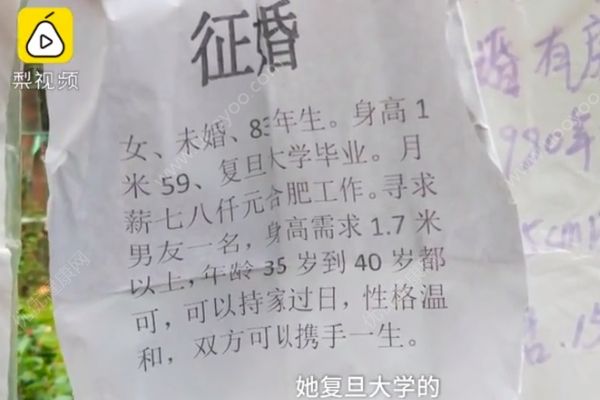 征婚
女、未婚、83年生。身高1
米59、复旦大学毕业。月
薪七八仟元合肥工作。寻求
男友一名，身高需求1.7米
以上，年龄35岁到40岁都
可，可以持家过日，性格温
和，双方可以携手一生。
婚有房
980年
梨视频
她复旦大学的